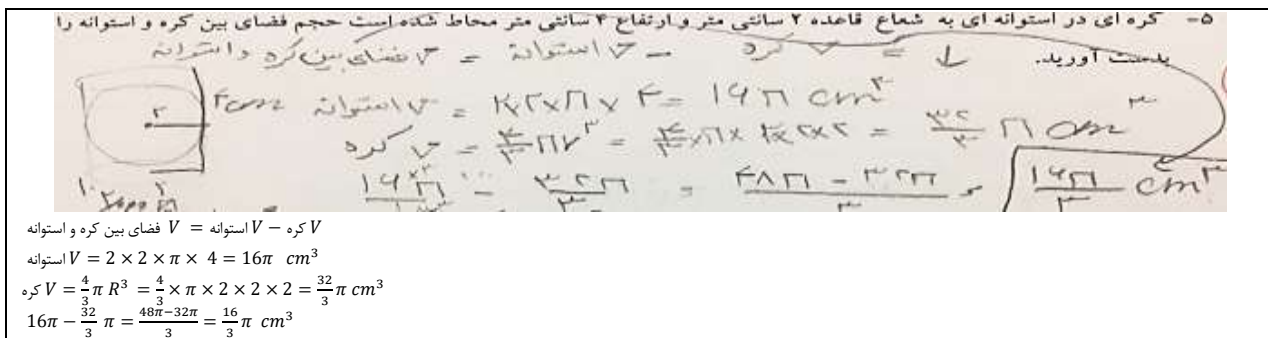 ۵- کره ای در استوانه ای به شعاع قاعده ۲ سانتی متر و ارتفاع ۴ سانتی متر محاط شده است حجم فضای بین کره و استوانه را
بدست آورید.
V فضای بین کره و استوانه = V استوانه - V کره = ↓
۴cm
۲
V استوانه = ۲×۲×π×۴ = ۱۶π cm³
V کره = ۴/۳ πr³ = ۴/۳×π×۲×۲×۲ = ۳۲/۳ π cm³
- ۳۲π/۳ = ۴۸π - ۳۲π/۳ = ۱۶π/۳ cm³
V فضای بین کره و استوانه = V استوانه − V کره
استوانه V = 2 × 2 × π × 4 = 16π cm³
کره V = 4/3 π R³ = 4/3 × π × 2 × 2 × 2 = 32/3 π cm³
16π − 32/3 π = 48π−32π/3 = 16/3 π cm³